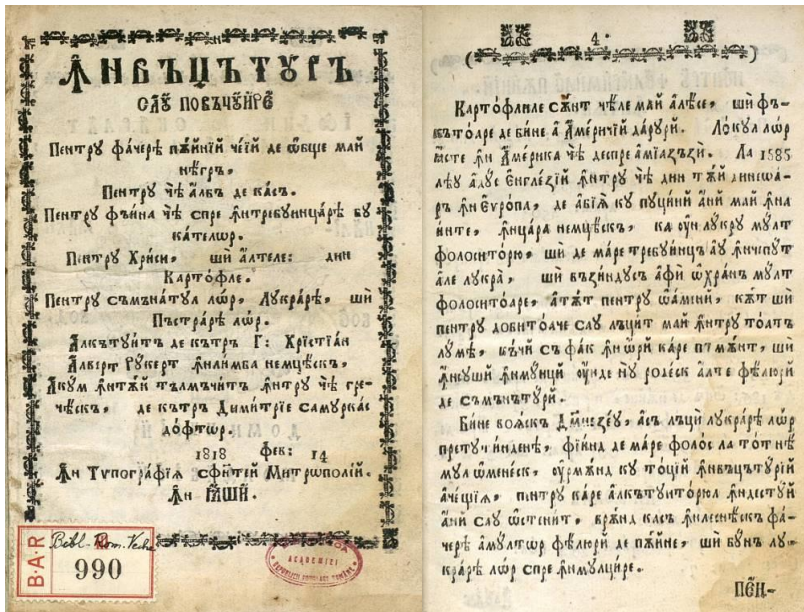 ꙞНВЪЦЪТꙊРЪ
СЛꙊ ПОВЪЧꙊИРЕ
Пентрꙋ фачерѣ пѫйнїй чеїй де ѡбще май
нѣгрꙋ,
Пентрꙋ чѣ албъ де касъ.
Пентрꙋ фъина чѣ спре ꙟнтребꙋинцарѣ бꙋ
кателѡр.
Пентрꙋ Хриси, ши алтеле: дин
Картофле.
Пентрꙋ съмънатꙋл лѡр, Лꙋкрарѣ, ши
Пъстрарѣ лѡр.
Алкътꙋит де кътръ Г: Хрїстїан
Алберт Рꙋкерт ꙟнлимба немцѣскъ,
Акꙋм ꙟнтѫй тълмъчит ꙟнтрꙋ чѣ гре-
чѣскъ, де кътръ Димитрїе Самꙋркаш
дофтѡр.
1818 фев: 14
Ꙟн Тѵпографїѧ сфинтей Митрополїй.
Ꙟн Ꙗшй.
B·A·R
Bibl. Rom. Veche
990
4.
Картофлиле сѫнт чѣле май алѣсе, ши фъ-
кътоаре де бине а Америчїй дарꙋри. Локꙋл лѡр
ꙗсте ꙟн Америка чѣ деспре амїазъзи. Ла 1585
лѣꙋ адꙋс Енглезїй ꙟнтрꙋ чѣ дин тѫй динсѡа-
ръ ꙟн Еѵропа, де абїѧ кꙋ пꙋцинй анй май ꙟна
инте, ꙟнцара немцѣскъ, ка ꙋн лꙋкрꙋ мꙋлт
фолоситорю, ши де маре требꙋинцъ аꙋ ꙟнчепꙋт
але лꙋкра, ши възиндꙋс афи ѡхранъ мꙋлт
фолоситоаре, атѫт пентрꙋ ѡаминй, кѫт ши
пентрꙋ добитоаче саꙋ лъцит май ꙟнтрꙋ тоатъ
лꙋмѣ, въчи съ фак ꙟн ѡри каре пъмѫнт, ши
ꙟнсꙋши ꙟнмꙋнци ꙋнде нꙋ родеск алте фелюри
де съмънътꙋри.
Бине воѧскъ Дꙋмнезеꙋ, асъ лъци лꙋкрарѣ лѡр
претꙋтинденѣ, фїинд де маре фолос ла тот нѣ
мꙋл ѡменеск, ꙋрмѫнд кꙋ тоцїй ꙟнвъцътꙋрїй
ачещїѧ, пентрꙋ каре алкътꙋиторюл ꙟндестꙋй
анй саꙋ ѡстенит, врѫнд касъ ꙟнлеснѣскъ фа-
черѣ амꙋлтѡр фелюри де пѫйне, ши бꙋнъ лꙋ-
крарѣ лѡр спре ꙟнмꙋлцире.
ПЕН-